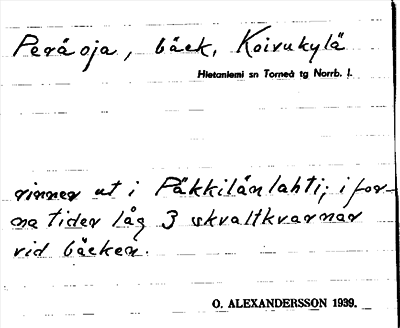 Peräoja, bäck, Koivukylä
Hietaniemi sn Torneå tg Norrb. l.
rinner ut i Päkkilänlahti; i for-
na tider låg 3 skvaltkvarnar
vid bäcken.
O. ALEXANDERSSON 1939.